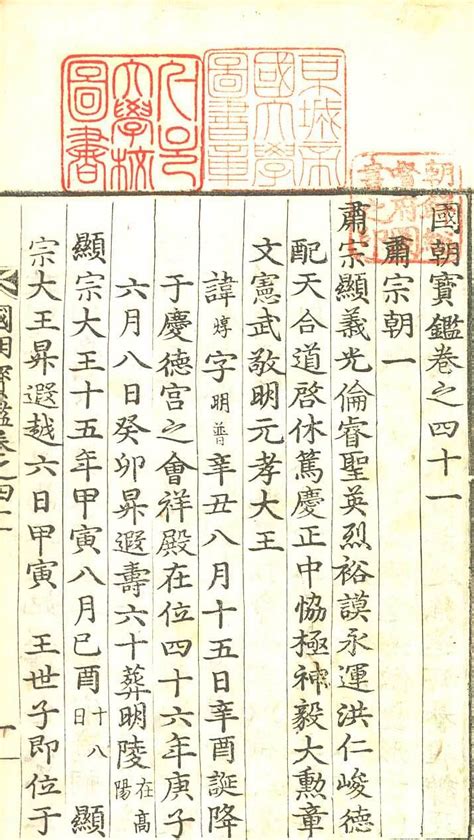 京城帝
國大學
圖書章
大學校
圖書
朝鮮總
督府圖
書之印
國朝寶鑑卷之四十一
肅宗朝一
肅宗顯義光倫睿聖英烈裕謨永運洪仁峻德
配天合道啓休篤慶正中恊極神毅大勳章
文憲武敬明元孝大王
諱焞字明普辛丑八月十五日辛酉誕降
于慶德宮之會祥殿在位四十六年庚子
六月八日癸卯昇遐壽六十葬明陵在高陽
顯宗大王十五年甲寅八月己酉十八日 顯
宗大王昇遐越六日甲寅 王世子即位于